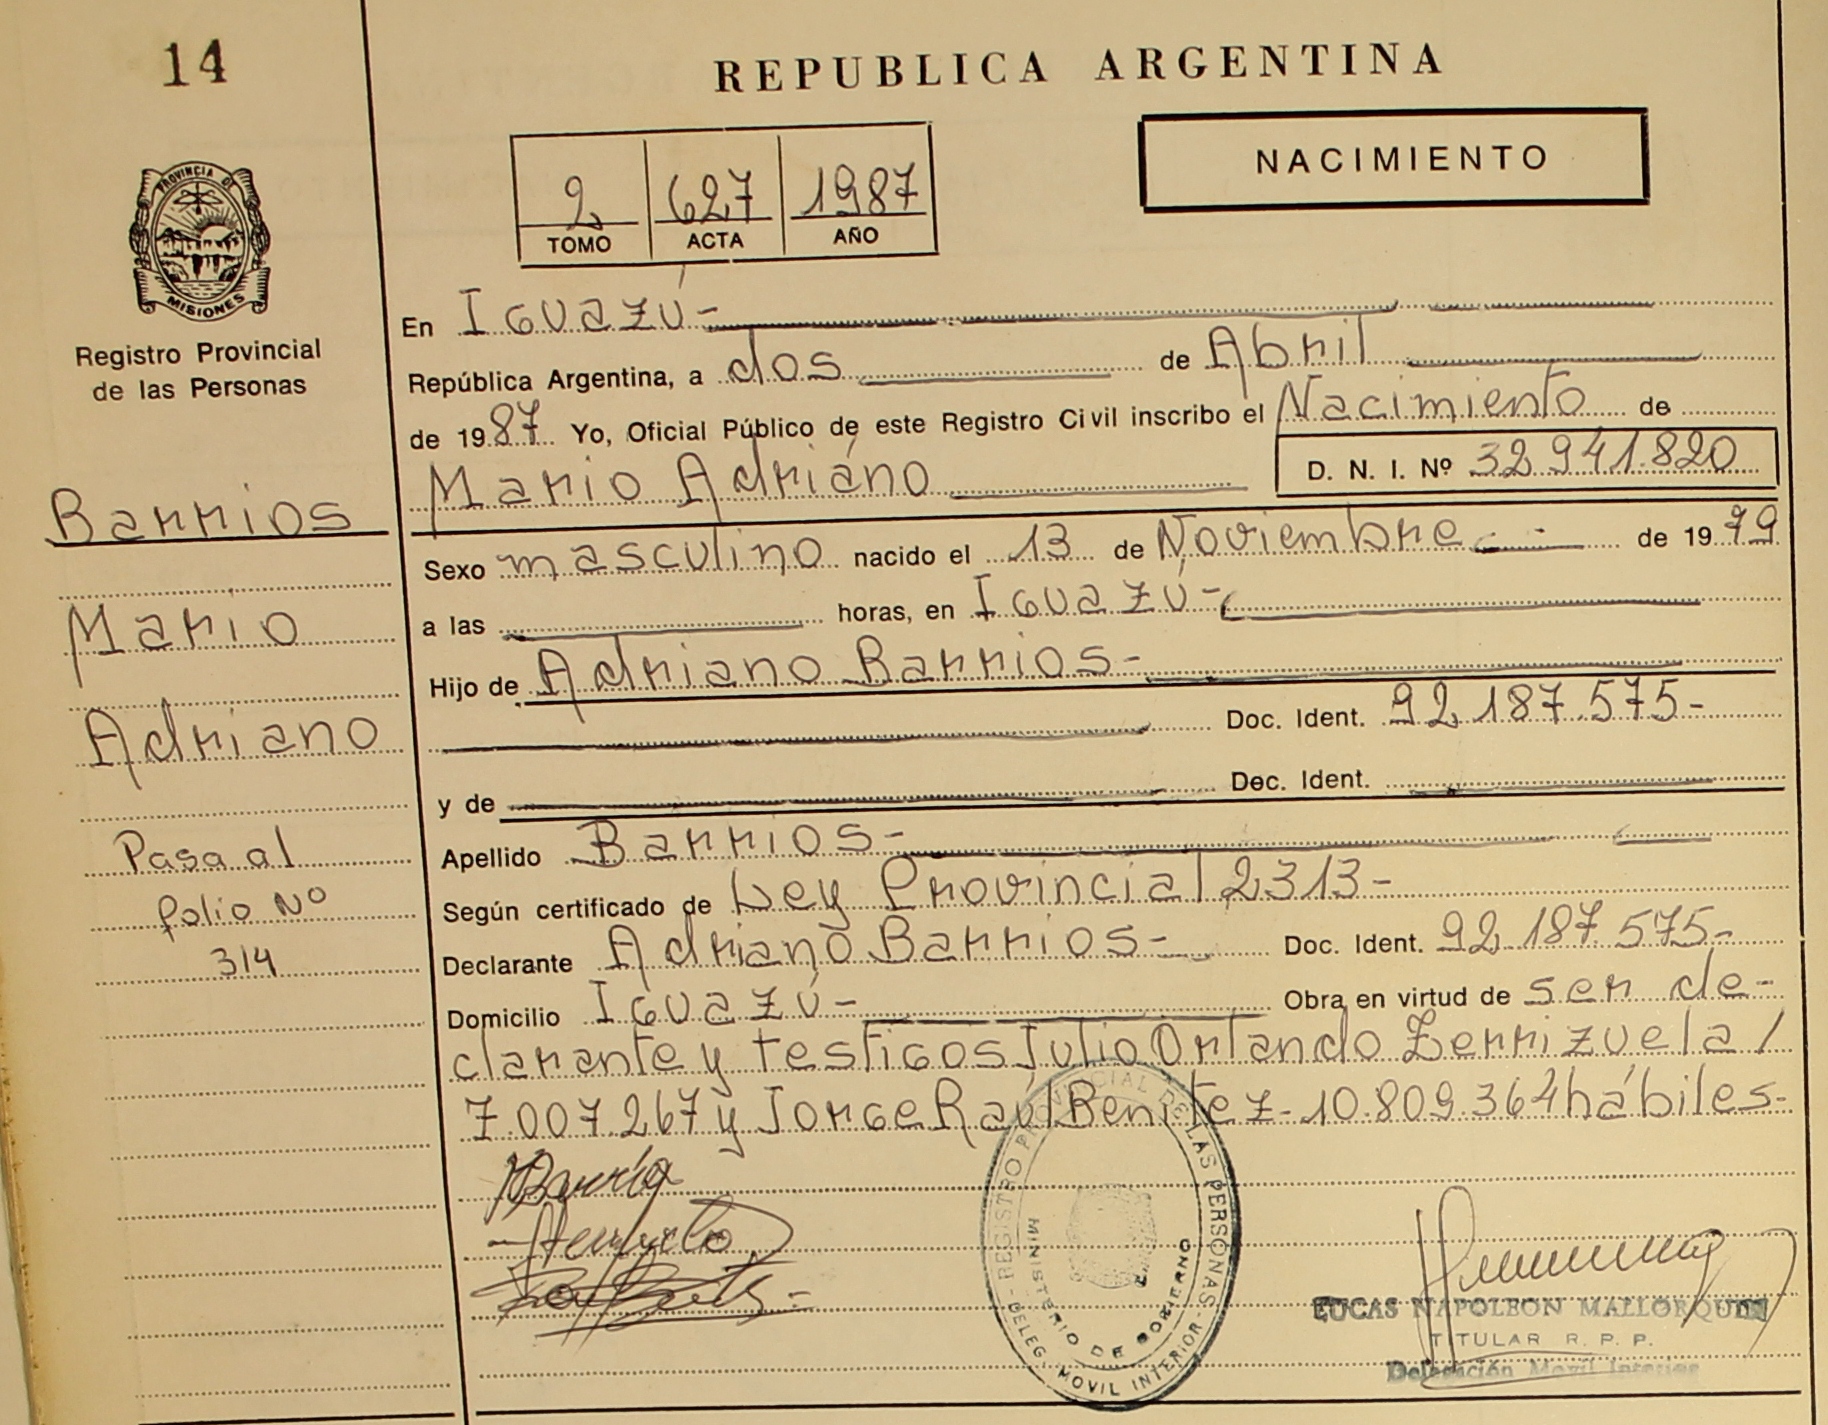 14
REPUBLICA ARGENTINA
NACIMIENTO
2 627 1987
TOMO ACTA AÑO
PROVINCIA DE MISIONES
Registro Provincial
de las Personas
Barrios
Mario
Adriano
Pasa al
folio Nº
314
En Iguazú-
República Argentina, a dos de Abril
de 1987 Yo, Oficial Público de este Registro Civil inscribo el Nacimiento de
Mario Adriano D. N. I. Nº 32 941.820
Sexo masculino nacido el 13 de Noviembre de 1979
a las horas, en Iguazú-
Hijo de Adriano Barrios-
Doc. Ident. 92 187.575-
y de Dec. Ident.
Apellido Barrios-
Según certificado de Ley Provincial 2313-
Declarante Adriano Barrios- Doc. Ident. 92 187 575-
Domicilio Iguazú- Obra en virtud de ser de-
clarante y testigos Julio Orlando Zerrizuela /
7.007.267 y Jorge Raúl Benitez- 10.809.364 hábiles-
REGISTRO PROVINCIAL DE LAS PERSONAS
MINISTERIO DE GOBIERNO
DELEG. MOVIL INTERIOR
LUCAS NAPOLEON MALLORQUIN
TITULAR R. P. P.
Delegación Movil Interior